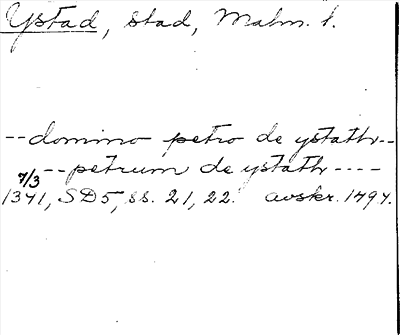 Ystad, stad, Malm. l.
-- domino petro de ystath --
7/3 -- petrum de ystath ----
1341, SD5, ss. 21, 22. avskr. 1494.